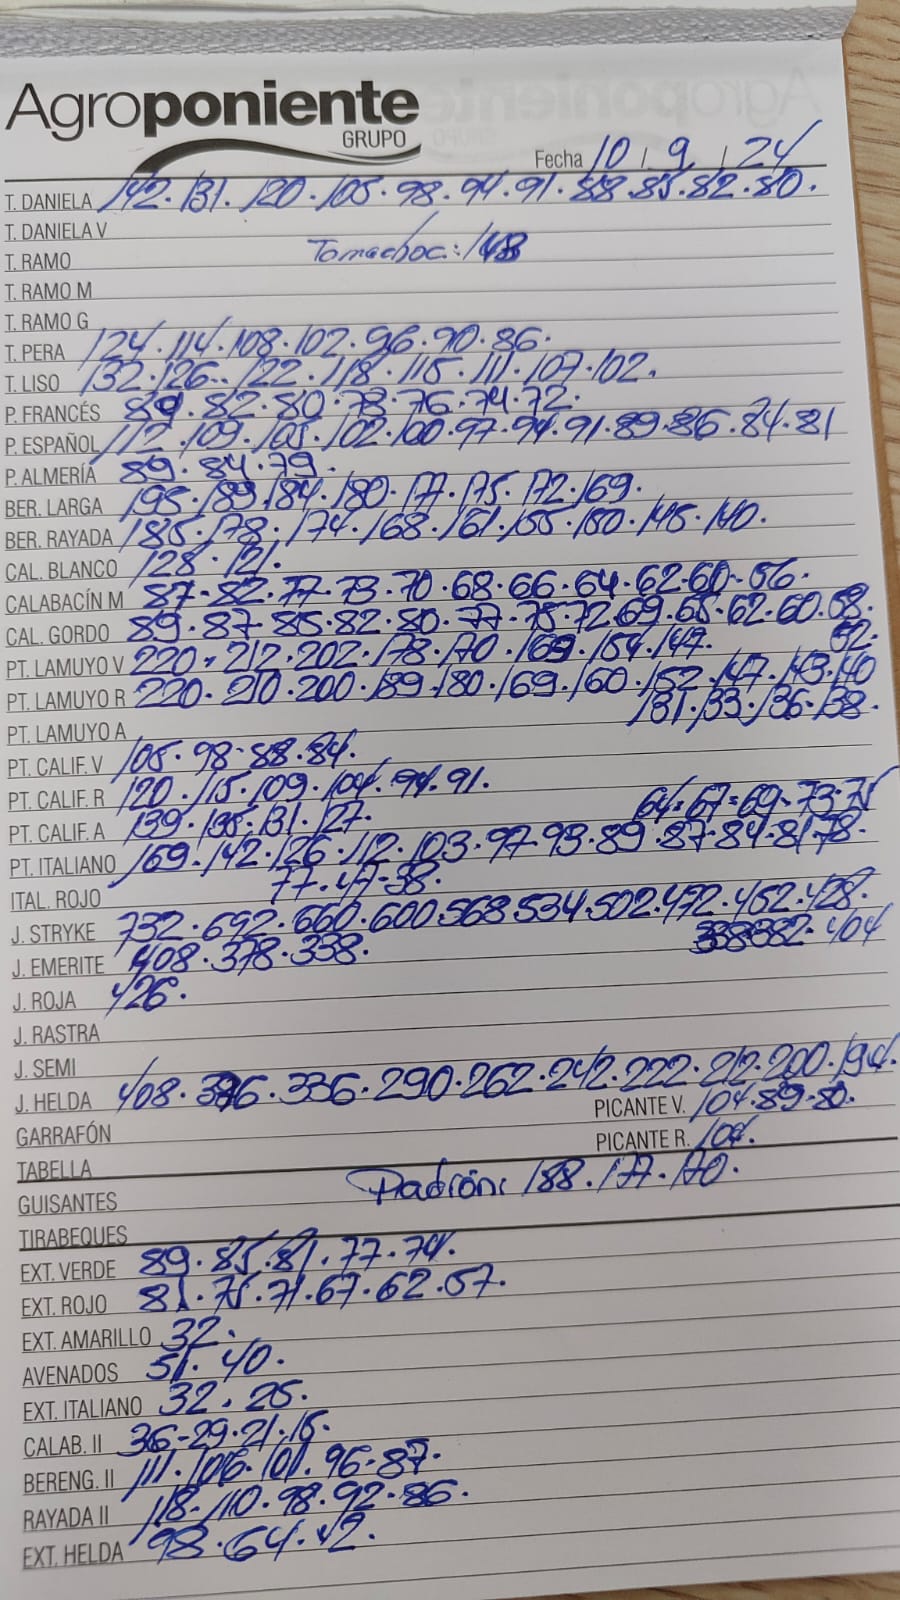 Agroponiente
GRUPO
Fecha 10 / 9 / 24
T. DANIELA 142.131.120.105.98.94.91.88.85.82.80.
T. DANIELA V
T. RAMO Tomachoc: 148
T. RAMO M
T. RAMO G
T. PERA 124.114.108.102.96.90.86.
T. LISO 132.126..122.118.115.111.107.102.
P. FRANCÉS 89.82.80.78.76.74.72.
P. ESPAÑOL 112.109.105.102.100.97.94.91.89.86.84.81
P. ALMERÍA 89.84.79.
BER. LARGA 195.189.184.180.177.175.172.169.
BER. RAYADA 185.178.174.168.161.155.150.145.140.
CAL. BLANCO 128.121.
CALABACÍN M 87-82.77-73.70.68.66.64.62.60-56.
CAL. GORDO 89.87.85.82.80.77.75.72.69.65.62.60.58.
52.
PT. LAMUYO V 220.212.202.178.170.169.154.147.
PT. LAMUYO R 220.210.200.189.180.169.160.152.147.143.140
131.133.136.138.
PT. LAMUYO A
PT. CALIF. V 105.98-88.84.
PT. CALIF. R 120.115.109.104.94.91.
PT. CALIF. A 139.135.131.127.
64=67=69-73.75
PT. ITALIANO 169.142.126.112.103.97.93.89.87.84.81.78.
ITAL. ROJO 77.47-38.
J. STRYKE 732.692.660.600.568.534.502.472.452.428.
382.404
J. EMERITE 408.378.338.
J. ROJA 426.
J. RASTRA
J. SEMI
J. HELDA 408.376.336.290.262.242.222.212.200.194.
PICANTE V. 104.89.80.
GARRAFÓN
PICANTE R. 104.
TABELLA
Padrón: 188.177.170.
GUISANTES
TIRABEQUES
EXT. VERDE 89.85.81.77.74.
EXT. ROJO 81.75.71.67.62.57.
EXT. AMARILLO 32.
AVENADOS 51.40.
EXT. ITALIANO 32.25.
CALAB. II 36-29.21.15.
BERENG. II 111.106.101.96-87.
RAYADA II 118-110.98.92-86.
EXT. HELDA 98.64.42.